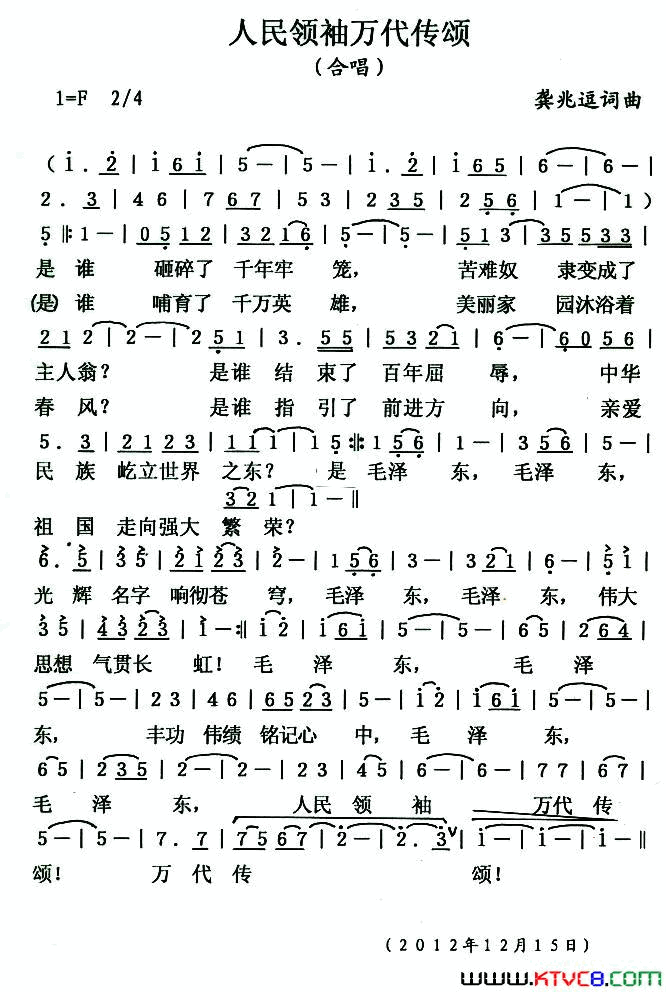 人民领袖万代传颂
（合唱）
1=F 2/4 龚兆逗词曲
( i̇ . 2̇ | i̇ 6 i̇ | 5 － | 5 － | i̇ . 2̇ | i̇ 6 5 | 6 － | 6 － |
2 . 3 | 4 6 | 7 6 7 | 5 3 | 2 3 5 | 2 5 6 | 1 － | 1 )
5 𝄆 1 － | 0 5 1 2 | 3 2 1 6 | 5 － | 5 － | 5 1 3 | 3 5 5 3 3
是 谁 砸碎了 千年牢 笼， 苦难奴 隶变成了
(是) 谁 哺育了 千万英 雄， 美丽家 园沐浴着
2 1 2 | 2 － | 2 － | 2 5 1 | 3 . 5 5 | 5 3 2 1 | 6 － | 6 0 5 6 |
主人翁？ 是谁 结 束了 百年屈 辱， 中华
春 风？ 是谁 指 引了 前进方 向， 亲爱
5 . 3 | 2 1 2 3 | 1 1 1 | 1 5 𝄇 1 5 6 | 1 － | 3 5 6 | 5 － |
民 族 屹立世界 之东？ 是 毛泽 东，毛泽 东，
3 2 1 | 1 － ‖
祖 国 走向强大 繁 荣？
6 . 5 | 3 5 | 2 1 2 3 | 2 － | 1 5 6 | 3 － | 3 2 1 | 6 － | 5 1 |
光 辉 名字 响彻苍 穹，毛泽 东，毛泽 东，伟大
3 5 | 4 3 2 3 | 1 － 𝄇 i̇ 2̇ | i̇ 6 i̇ | 5 － | 5 － | 6 5 | 2 6 4 |
思想 气贯长 虹！毛 泽 东， 毛 泽
5 － | 5 － | 2 3 | 4 6 | 6 5 2 3 | 5 － | 5 － | i̇ 2̇ | i̇ 6 i̇ | 5 － |
东， 丰功 伟绩 铭记心 中，毛 泽 东，
6 5 | 2 3 5 | 2 － | 2 － | 2 3 | 4 5 | 6 － | 6 － | 7 7 | 6 7 |
毛 泽 东， 人民 领 袖 万代 传
5 － | 5 － | 7 . 7 | 7 5 6 7 | 2̇ － | 2̇ . 3̇ ∨ | i̇ － | i̇ － | i̇ － ‖
颂！ 万 代 传 颂！
（2012年12月15日）
www.KTVC8.com